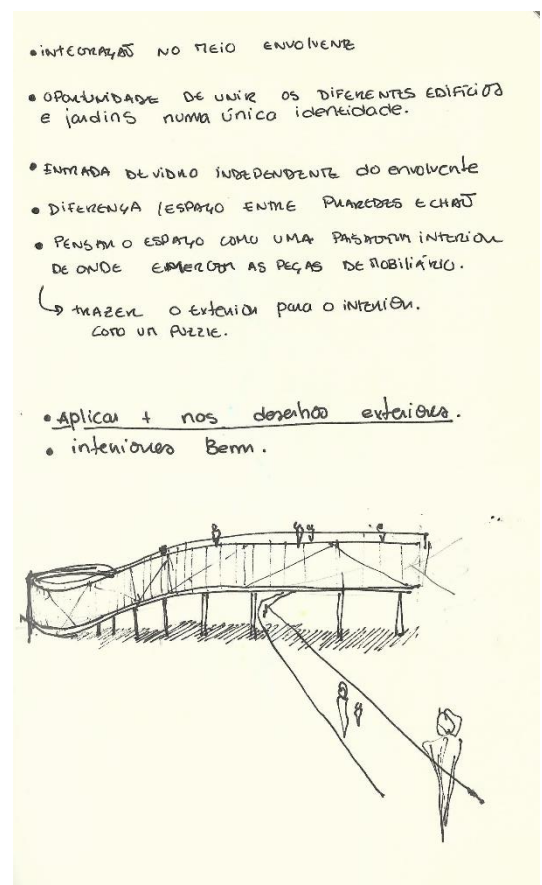 • INTEGRAÇÃO NO MEIO ENVOLVENTE
• OPORTUNIDADE DE UNIR OS DIFERENTES EDIFÍCIOS
e jardins numa única identidade.
• ENTRADA DE VIDRO INDEPENDENTE do envolvente
• DIFERENÇA / ESPAÇO ENTRE PAREDES E CHÃO
• PENSAR O ESPAÇO COMO UMA PASSAGEM INTERIOR
DE ONDE EMERGEM AS PEÇAS DE MOBILIÁRIO.
↳ TRAZER O EXTERIOR para o INTERIOR.
COMO UM PUZZLE.
• Aplicar + nos desenhos exteriores.
• interiores Bem.